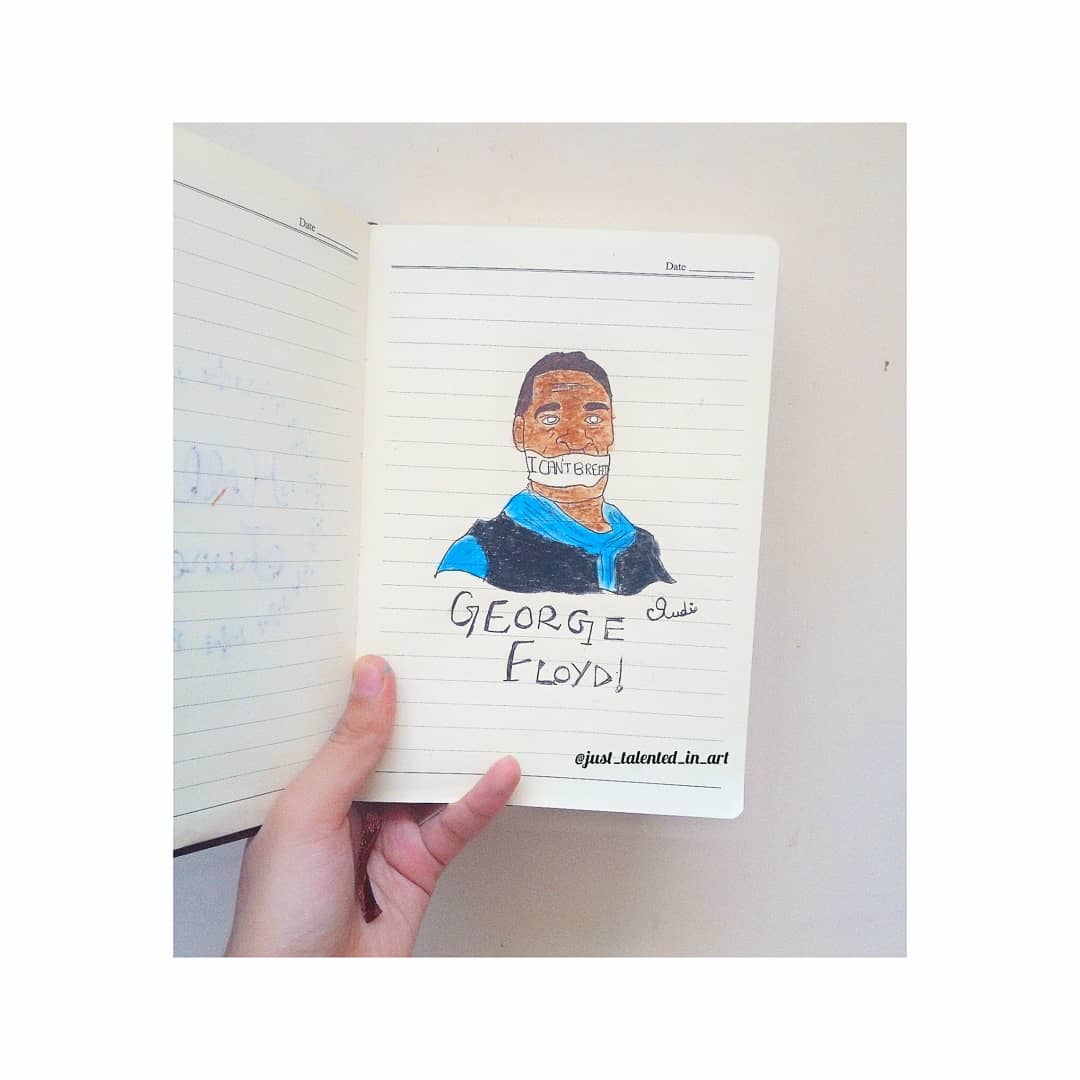 Date
Date
I CAN'T BREATH
GEORGE
FLOYD!
@just_talented_in_art